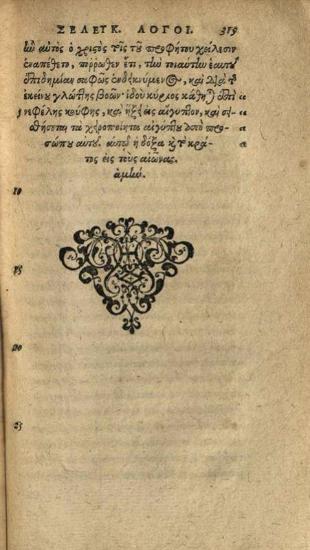 ΣΕΛΕΥΚ. ΛΟΓΟΙ. 319
αὐτὸς ὁ χριστὸς τοῖς τοῦ προφήτου χείλεσιν
πόρρωθεν ἔτι, τὴν τοιαύτην ἑαυτοῦ
ἐπιδημίαν σαφῶς ἐνδεικνύμενος, καὶ διὰ τῆς
ἐκείνου γλώττης βοῶν· ἰδοὺ κύριος κάθηται ἐπὶ
νεφέλης κούφης, καὶ ἥξει εἰς αἴγυπτον, καὶ σει-
σθήσεται τὰ χειροποίητα αἰγύπτου ἀπὸ προ-
σώπου αὐτοῦ. αὐτῷ ἡ δόξα καὶ τὸ κρά-
τος εἰς τοὺς αἰῶνας.
ἀμήν.
10
15
20
25